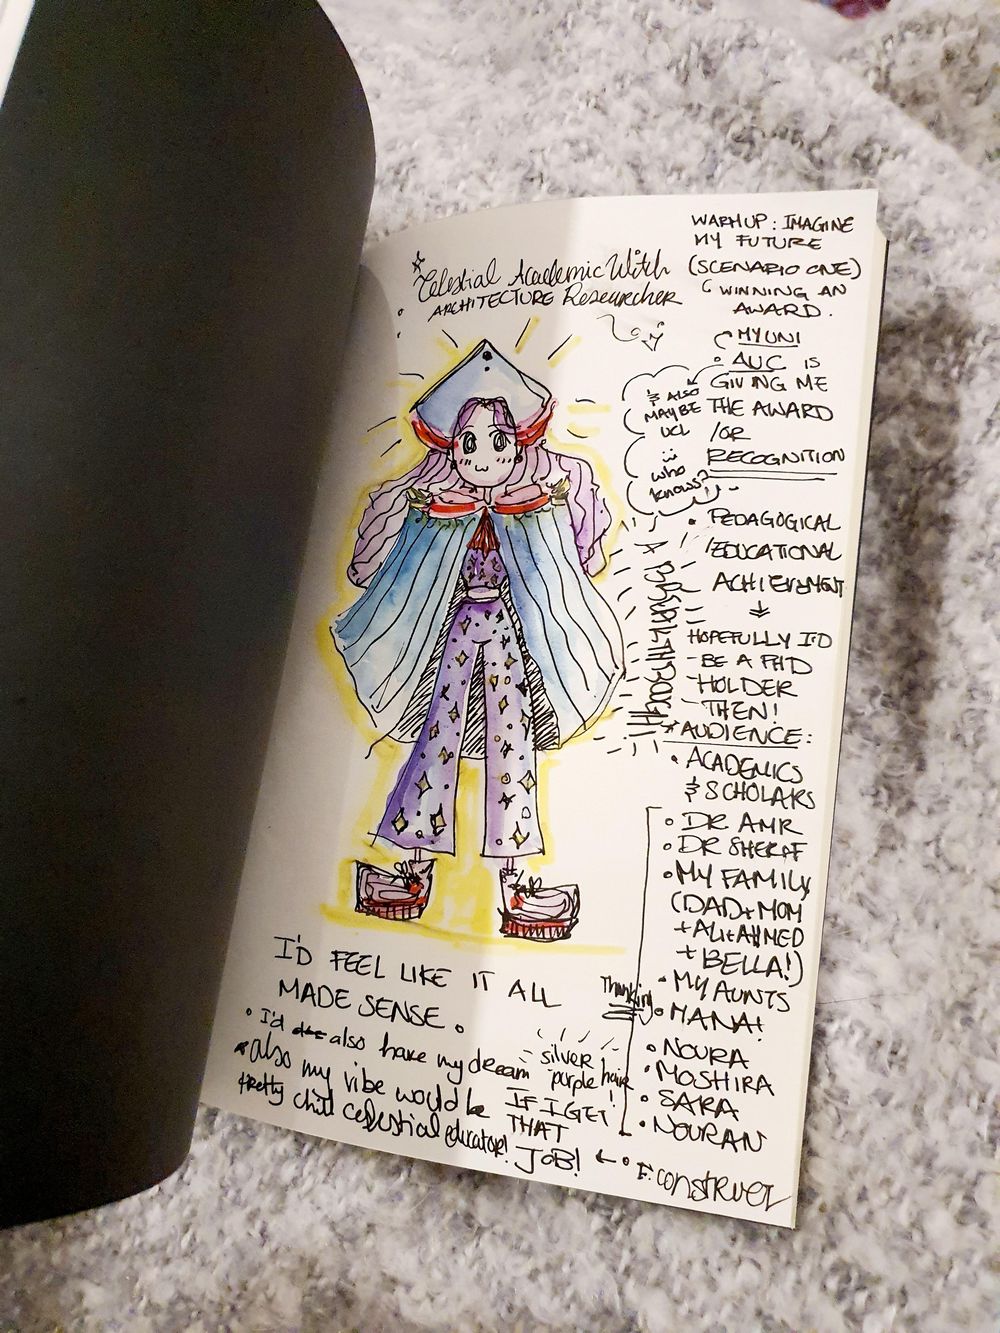 Celestial Academic Witch
ARCHITECTURE Researcher
WARMUP: IMAGINE
MY FUTURE
(SCENARIO ONE)
WINNING AN
AWARD.
MY UNI
AUC IS
GIVING ME
THE AWARD
/OR
RECOGNITION
& ALSO
MAYBE
UCL
who
knows?!!
• PEDAGOGICAL
/EDUCATIONAL
ACHIEVEMENT
HOPEFULLY I'D
BE A PHD
HOLDER
THEN!
AUDIENCE:
• ACADEMICS
& SCHOLARS
• DR AMR
• DR SHERIF
• MY FAMILY
(DAD+MOM
+ALI+AHMED
+ BELLA!)
• MY AUNTS
• MANAL
• NOURA
• MOSHIRA
• SARA
• NOURAN
Thanking
I'D FEEL LIKE IT ALL
MADE SENSE.
• I'd also have my dream silver
purple hair
IF I GET
THAT
JOB!
• also my vibe would be
pretty chill celestial educator!